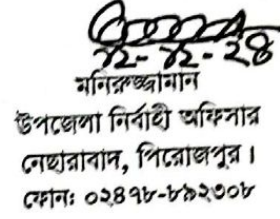 ১২-১২-২৪
মনিরুজ্জামান
উপজেলা নির্বাহী অফিসার
নেছারাবাদ, পিরোজপুর।
ফোন: ০২৪৭৮-৮৯২৩০৮